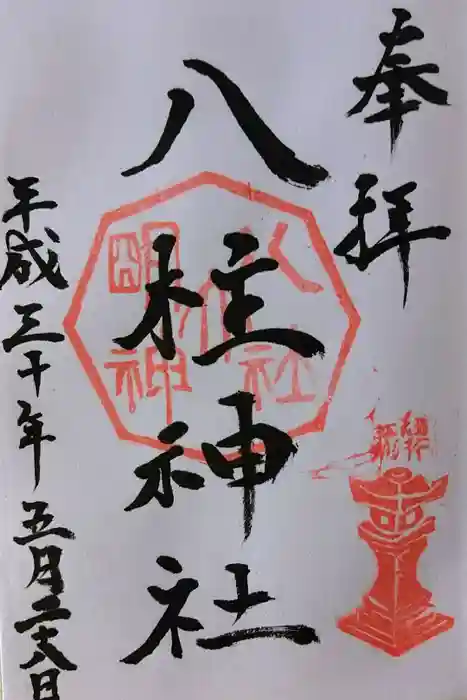 奉拝
八柱神社
平成三十年五月二十八日